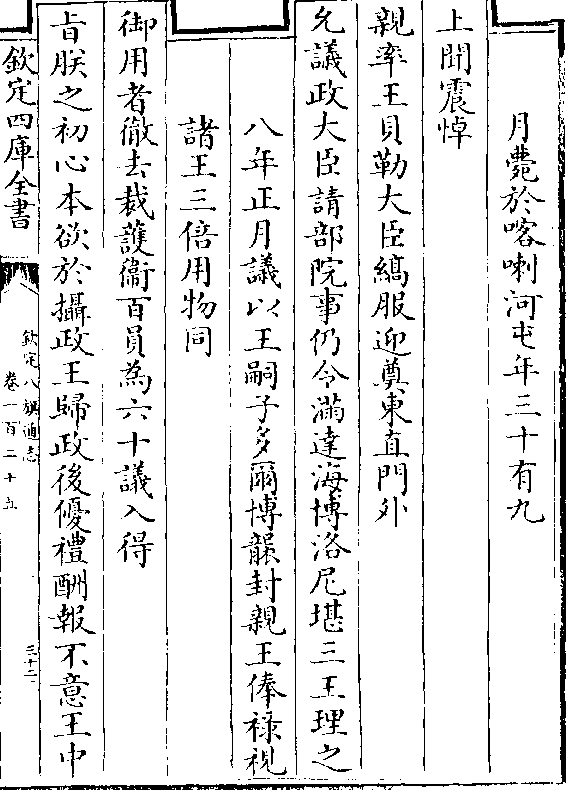 月薨於喀喇河屯年三十有九
上聞震悼
親率王貝勒大臣縞服迎奠東直門外
允議政大臣請部院事仍令滿達海博洛尼堪三王理之
八年正月議以王嗣子多爾博襲封親王俸祿視
諸王三倍用物同
御用者徹去裁護衞百員為六十議入得
旨朕之初心本欲於攝政王歸政後優禮酬報不意王中
欽定四庫全書
欽定八旗通志
卷一百二十五
三十二